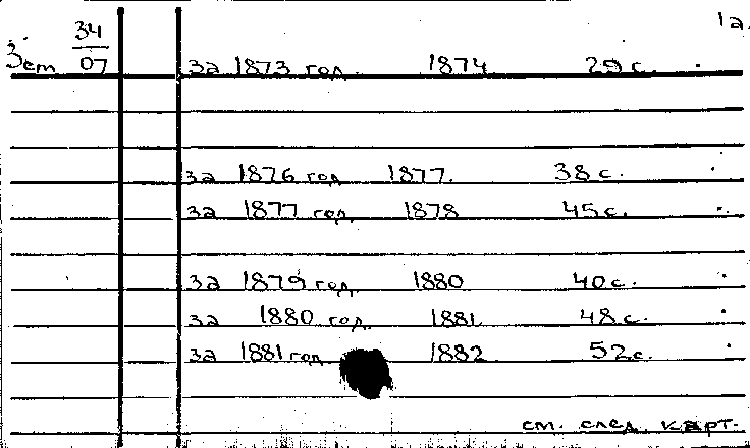 1а.
34
Зет 07
за 1873 год 1874 29 с.
за 1876 год 1877. 38 с.
за 1877 год. 1878 45 с.
за 1879 год. 1880 40 с.
за 1880 год. 1881. 48 с.
за 1881 год 1882 52 с.
см. след. карт.